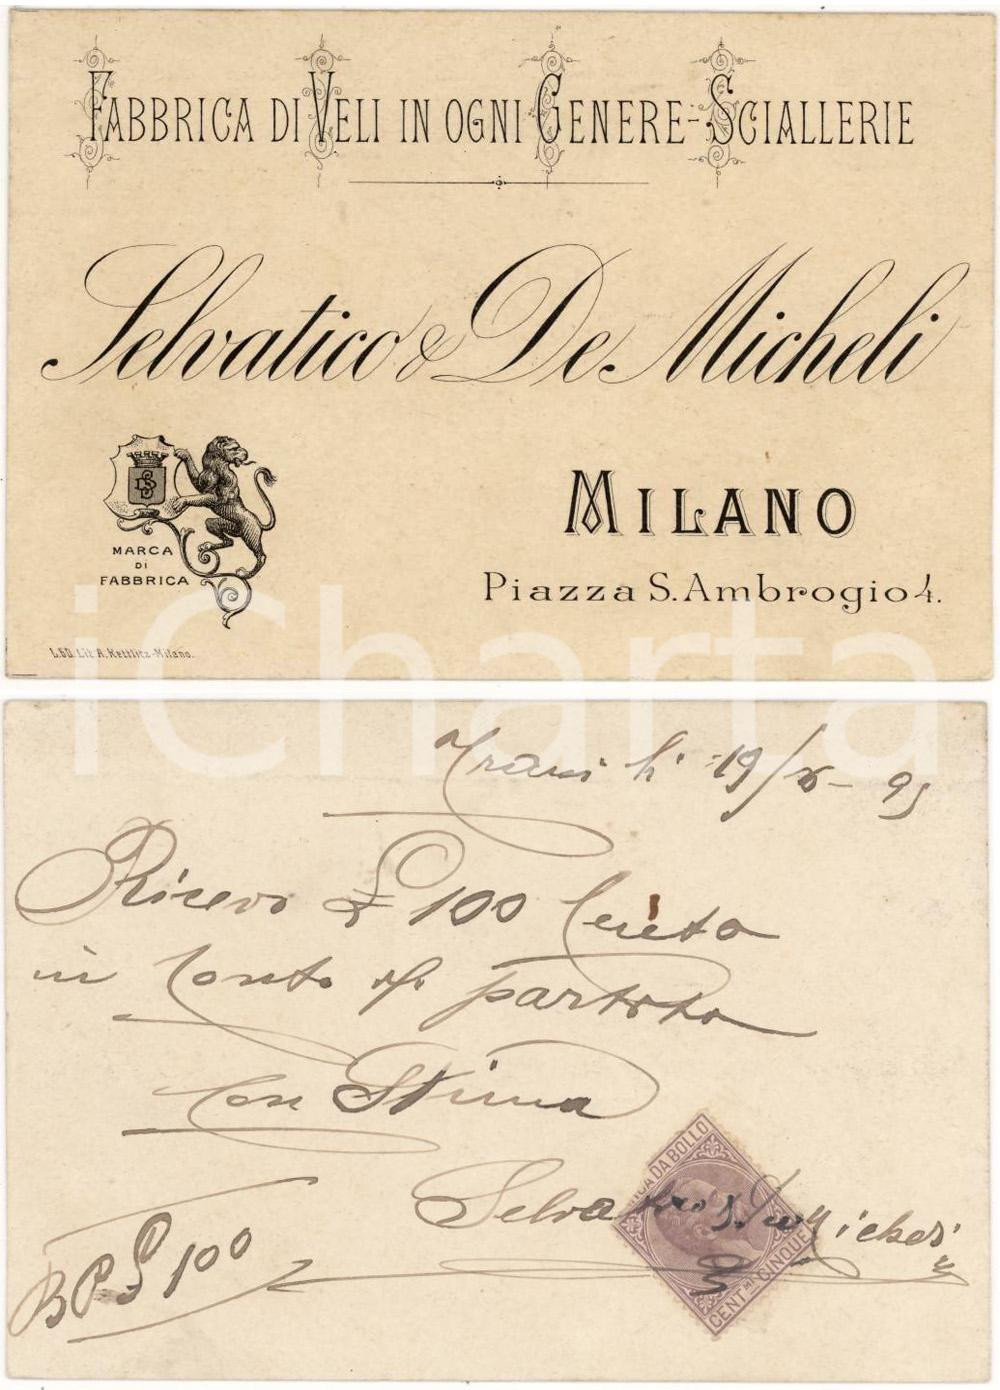 FABBRICA DI VELI IN OGNI GENERE-SCIALLERIE
Selvatico & De Micheli
MARCA
DI
FABBRICA
MILANO
Piazza S. Ambrogio 4.
Lit. A. Kettlitz-Milano.
iCharta
Trani li 19/X - 95
Ricevo £ 100 Cento
in conto di partita
Con Stima
Selvatico & De Micheli
BP £ 100
DA BOLLO
CENT.MI CINQUE